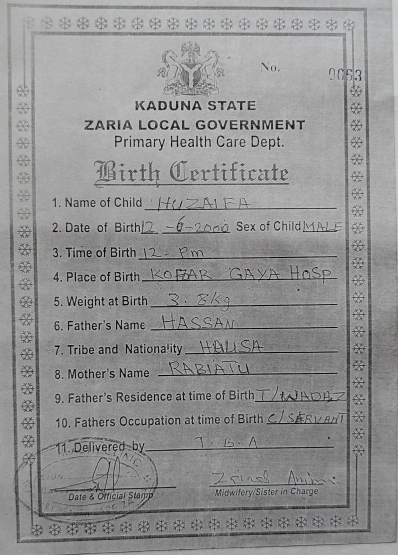 No. 0063
KADUNA STATE
ZARIA LOCAL GOVERNMENT
Primary Health Care Dept.
Birth Certificate
1. Name of Child HUZAIFA
2. Date of Birth 12-6-2000 Sex of Child MALE
3. Time of Birth 12 - Pm
4. Place of Birth KOFAR GAYA HOSP
5. Weight at Birth 3.8kg
6. Father's Name HASSAN
7. Tribe and Nationality HAUSA
8. Mother's Name RABIATU
9. Father's Residence at time of Birth T/WADA
10. Fathers Occupation at time of Birth C/SERVANT
11. Delivered by T.B.A
Date & Official Stamp
Midwifery/Sister in Charge